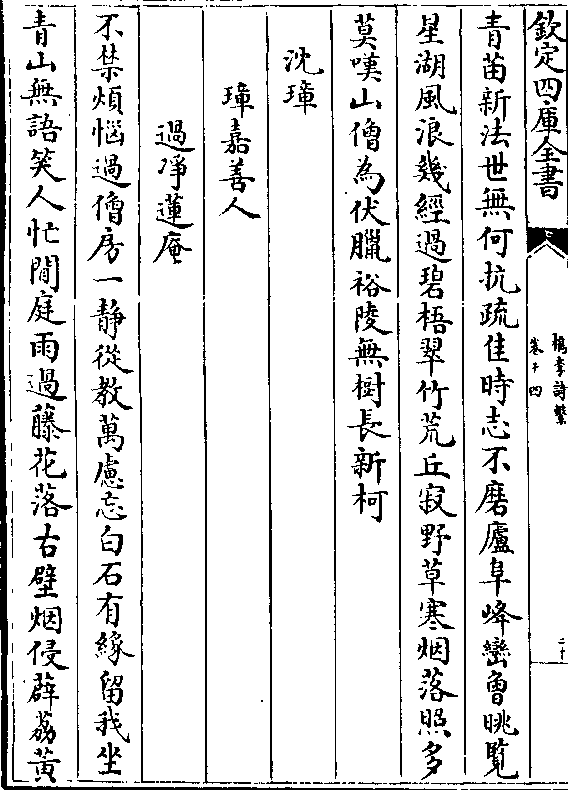 欽定四庫全書
檇李詩繫
卷十四
二十
青苗新法世無何抗疏佳時志不磨廬阜峰巒曾眺覧
星湖風浪幾經過碧梧翠竹荒丘寂野草寒烟落照多
莫嘆山僧為伏臘裕陵無樹長新柯
沈瑋
瑋嘉善人
過淨蓮庵
不禁煩惱過僧房一靜從教萬慮忘白石有緣留我坐
青山無語笑人忙閒庭雨過藤花落古壁烟侵薜荔黃